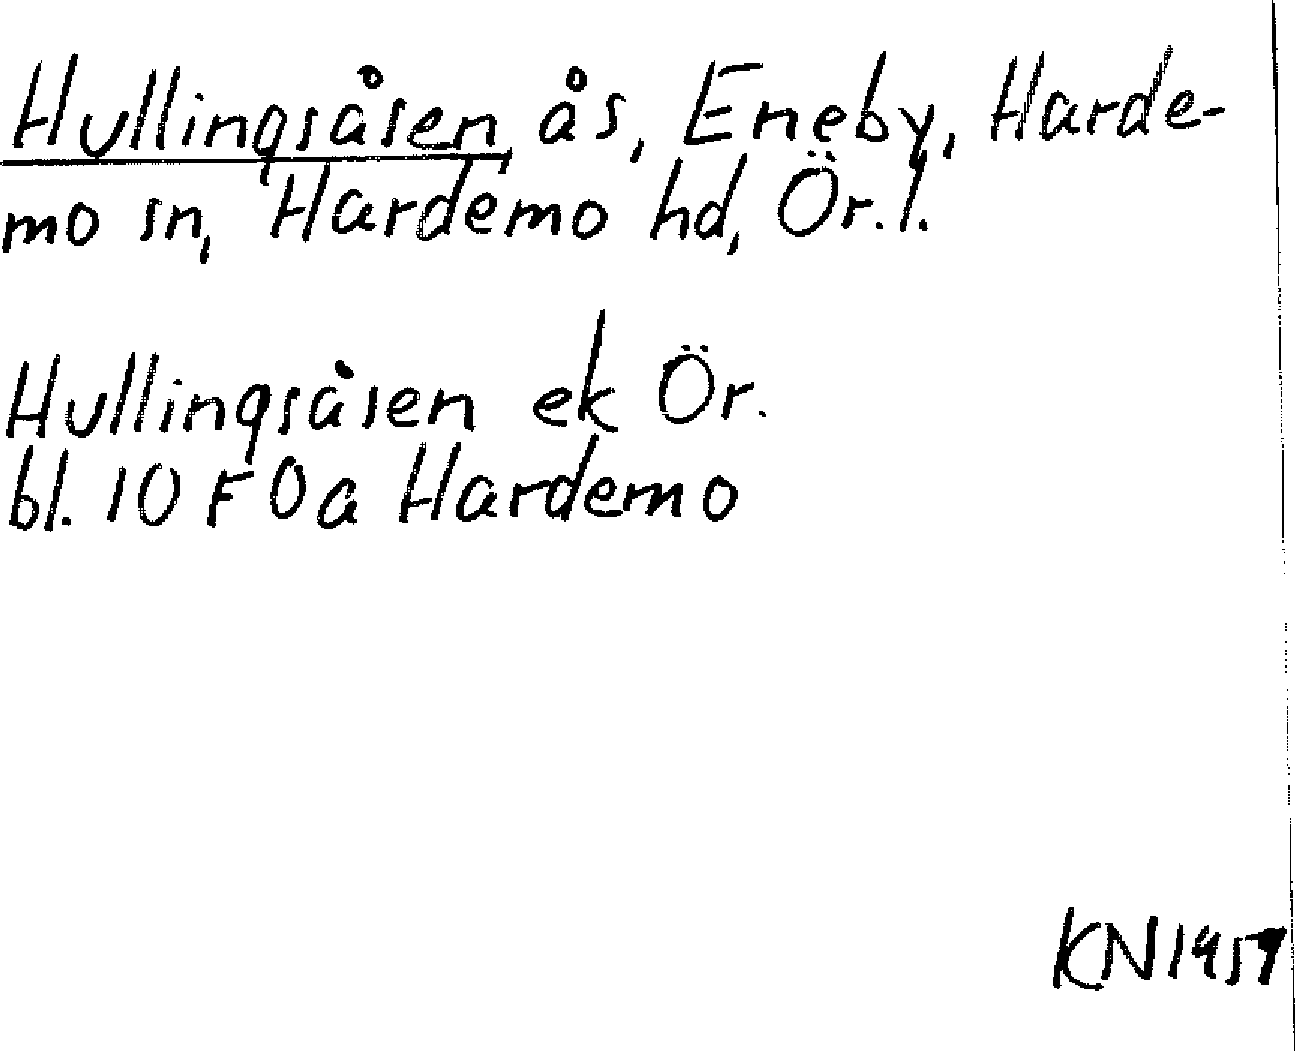 Hullingsåsen, ås, Eneby, Harde-
mo sn, Hardemo hd, Ör. l.
Hullingsåsen ek Ör.
bl. 10 F 0a Hardemo
KN 1959